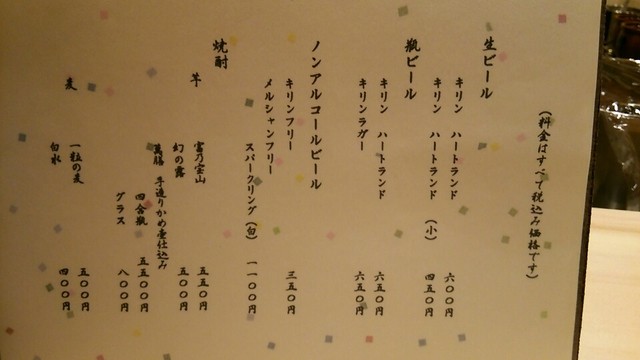 (料金はすべて税込み価格です)
生ビール
キリン ハートランド 六〇〇円
キリン ハートランド (小) 四五〇円
瓶ビール
キリン ハートランド 六五〇円
キリンラガー 六五〇円
ノンアルコールビール
キリンフリー 三五〇円
メルシャンフリー
スパークリング(白) 一一〇〇円
焼酎
芋
富乃宝山 五五〇円
幻の露 五〇〇円
萬膳 手造りかめ壺仕込み
四合瓶 五五〇〇円
グラス 八〇〇円
麦
一粒の麦 五〇〇円
白水 四〇〇円